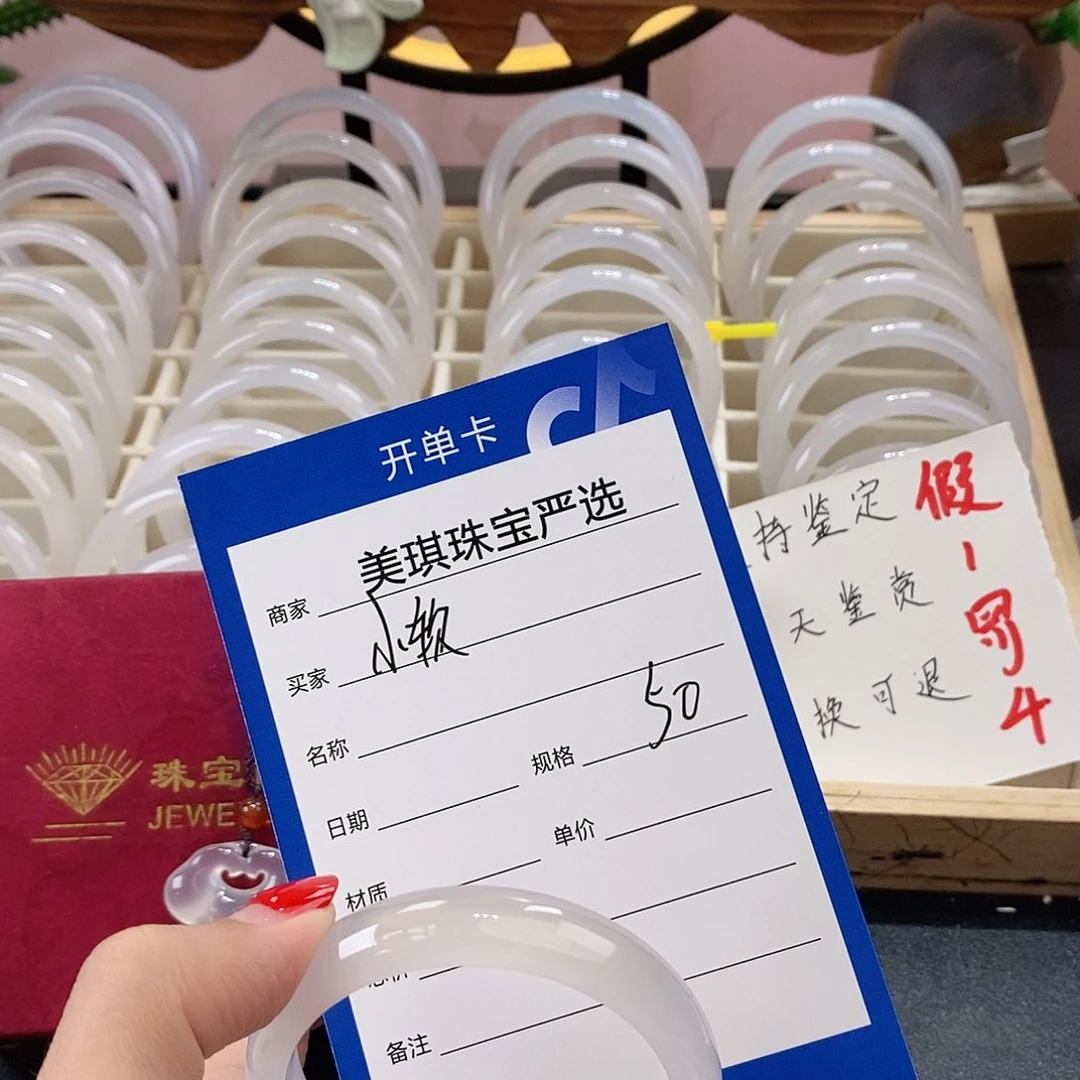 开单卡
商家 美琪珠宝严选
买家 小软
名称
规格 50
日期
单价
材质
总价
备注
持鉴定
天鉴赏
换可退
假一罚4
珠宝
JEWE